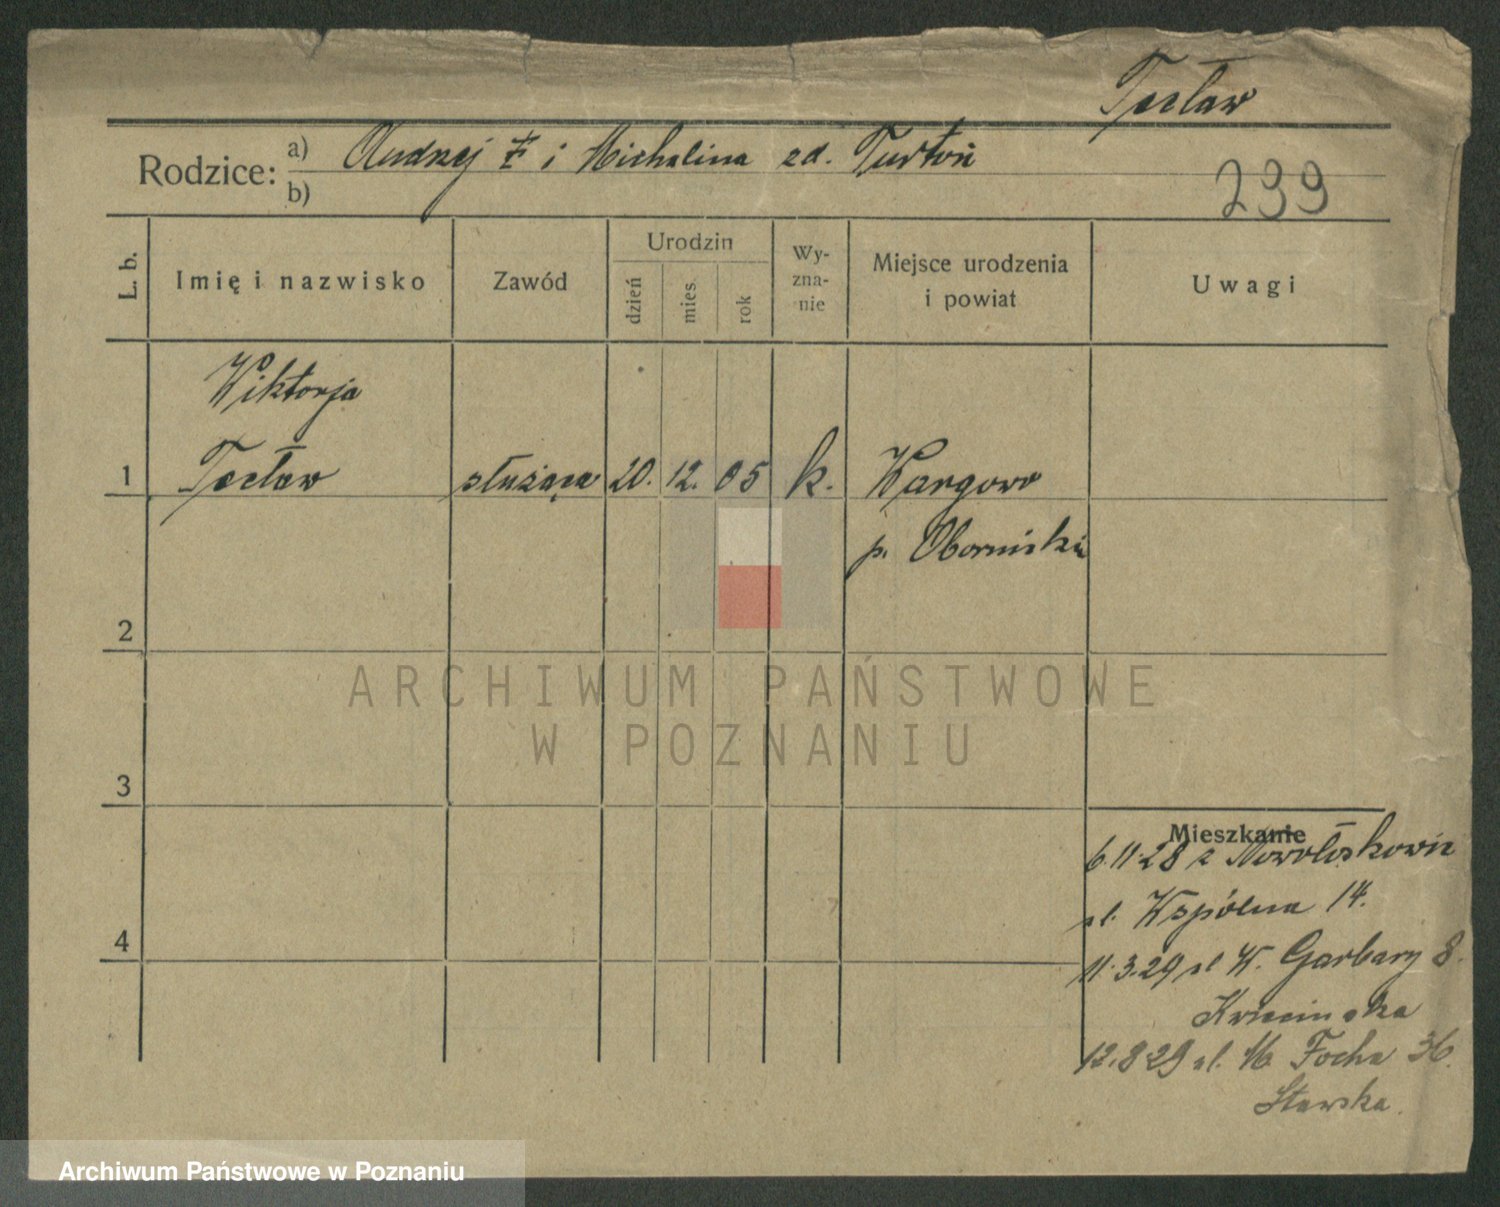 Tecław
Rodzice: a) Andrzej i Michalina zd. Turtoń
b)
239
L. b.
Imię i nazwisko
Zawód
Urodzin
dzień
mies.
rok
Wy-
zna-
nie
Miejsce urodzenia
i powiat
Uwagi
Wiktorja
1 Tecław służąca 20. 12. 05 k. Wargowo
p. Obornicki
2
ARCHIWUM PAŃSTWOWE
W POZNANIU
3
Mieszkanie
6.11.28 z
ul. Wspólna 14.
11.3.29 ul W. Garbary 8.
12.8.29 ul. M. Focha 36.
Stawska.
4
Archiwum Państwowe w Poznaniu